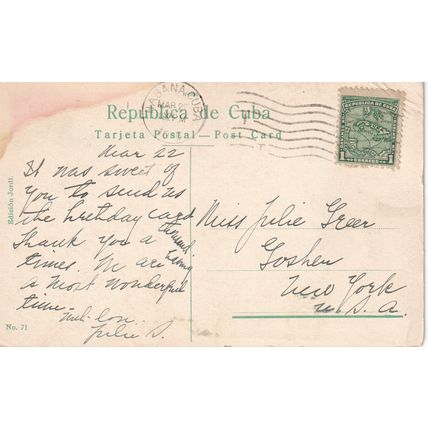 HABANA, CUBA
MAR 2
Republica de Cuba
Tarjeta Postal—Post Card
Edición Jordi.
No. 71
Mar 22
It was sweet of
you to send us
the birthday card
Thank you a thousand
times. We are having
a most wonderful
time.
with love.
Julie S.
Miss Julie Greer
Goshen
New York
U.S.A.